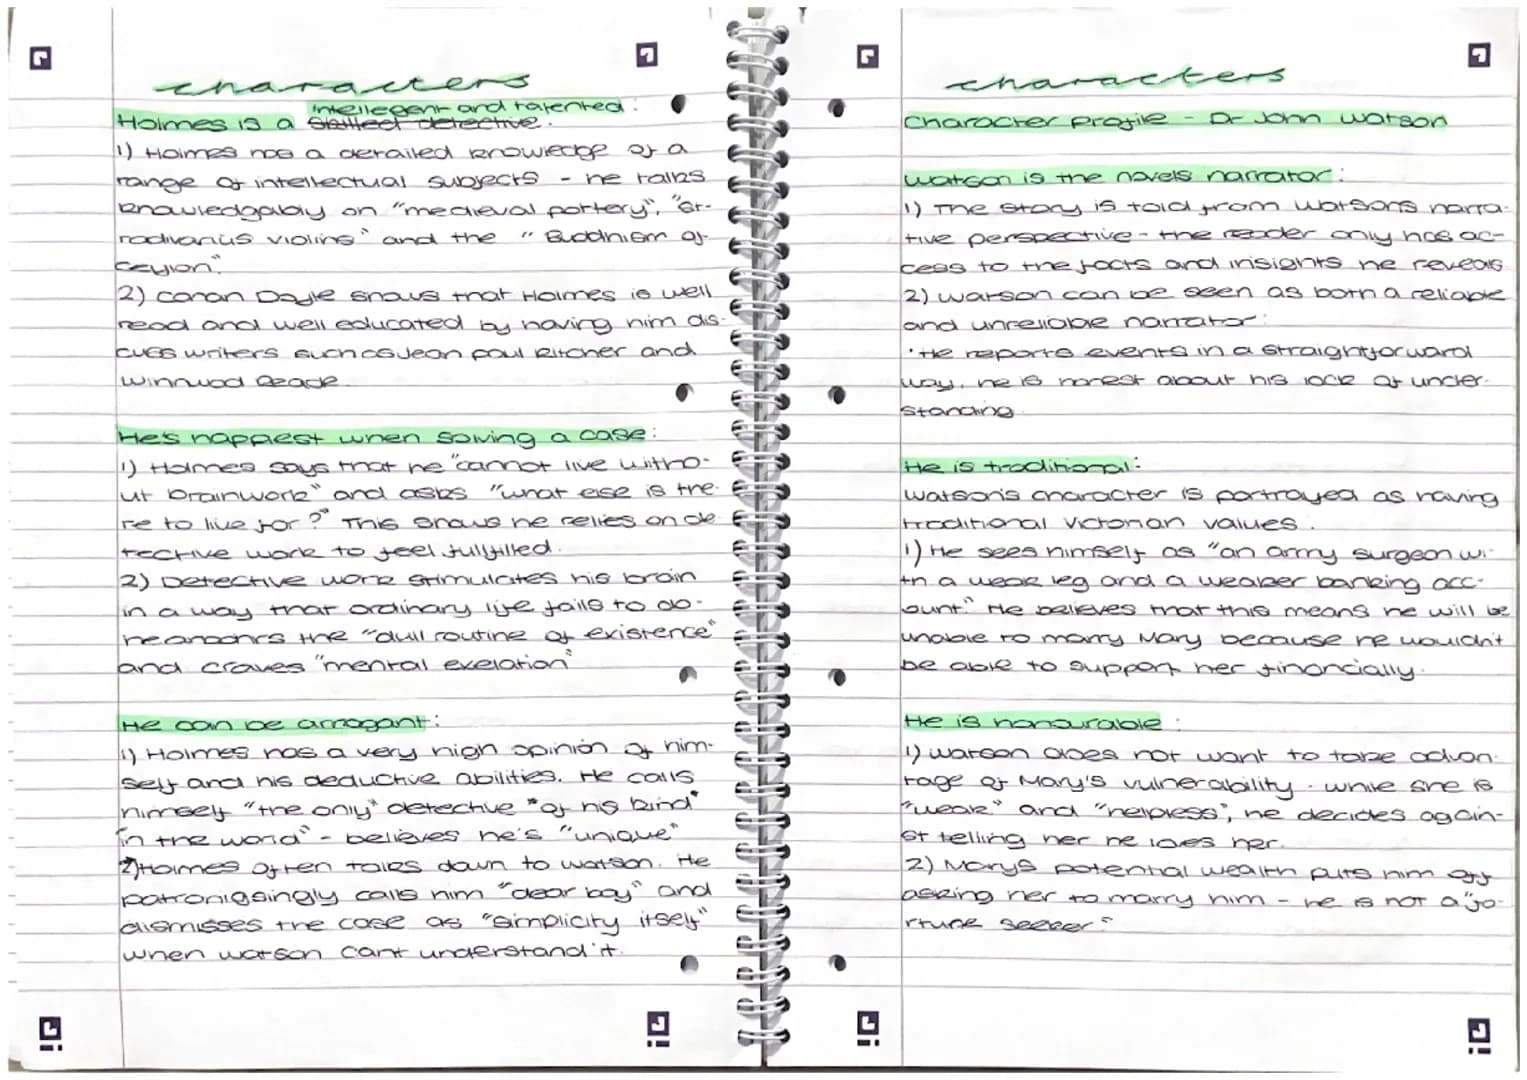 characters
intellegent and talented:
Holmes is a skilled detective.
1) Holmes has a detailed knowledge of a
range of intellectual subjects - he talks
knowledgably on "medieval pottery", "st-
radivarius violins" and the "Buddhism of
ceylon".
2) Conan Doyle shows that Holmes is well
read and well educated by having him dis-
cuss writers such as Jean paul Ritcher and
Winnwod Reade.
He's happiest when solving a case:
1) Holmes says that he "cannot live witho-
ut brainwork" and asks "what else is the-
re to live for?" This shows he relies on de
tective work to feel fulfilled.
2) Detective work stimulates his brain
in a way that ordinary life fails to do-
the "dull routine of existence"
and craves "mental exelation"
He can be arrogant:
1) Holmes has a very high opinion of him-
self and his deductive abilities. He calls
himself "the only" detective "of his kind"
in the world" - believes he's "unique"
2) Holmes often talks down to Watson. He
patronigsingly calls him "dear boy" and
dismisses the case as "simplicity itself"
when Watson cant understand it.
characters
Character profile - Dr John Watson
Watson is the novels narrator:
1) The story is told from Watsons narra-
tive perspective - the reader only has ac-
cess to the facts and insights he reveals
2) Watson can be seen as both a reliable
and unreliable narrator:
• He reports events in a straightforward
way, he is honest about his lack of under-
standing
He is traditional:
Watson's character is portrayed as having
traditional Victorian values.
1) He sees himself as "an army surgeon wi-
th a weak leg and a weaker banking acc-
ount." He believes that this means he will be
unable to marry Mary because he wouldn't
be able to support her financially.
He is honourable:
1) Watson does not want to take advan-
tage of Mary's vulnerability. While she is
"weak" and "helpless", he decides again-
st telling her he loves her.
2) Marys potential wealth puts him off
asking her to marry him - he is not a "fo-
rtune seeker"